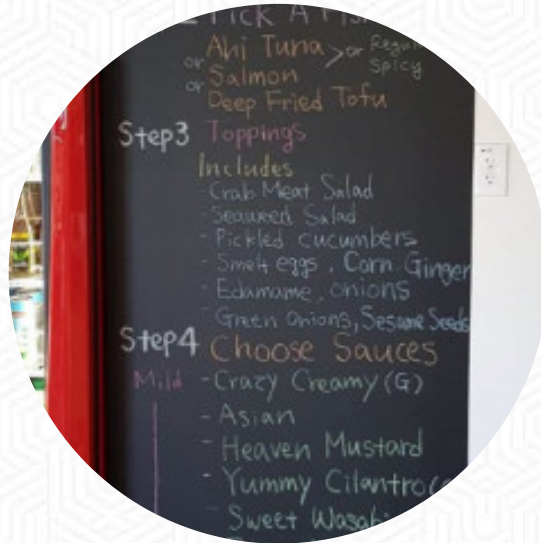 Pick A Fish
Ahi Tuna > or Regu
or Salmon Spicy
or Deep Fried Tofu
Step3 Toppings
Includes
- Crab Meat Salad
- Seaweed Salad
- Pickled cucumbers
- Smelt eggs, Corn Ginger
- Edamame, onions
- Green Onions, Sesame Seeds
Step4 Choose Sauces
Mild - Crazy Creamy (G)
- Asian
- Heaven Mustard
- Yummy Cilantro
- Sweet Wasabi